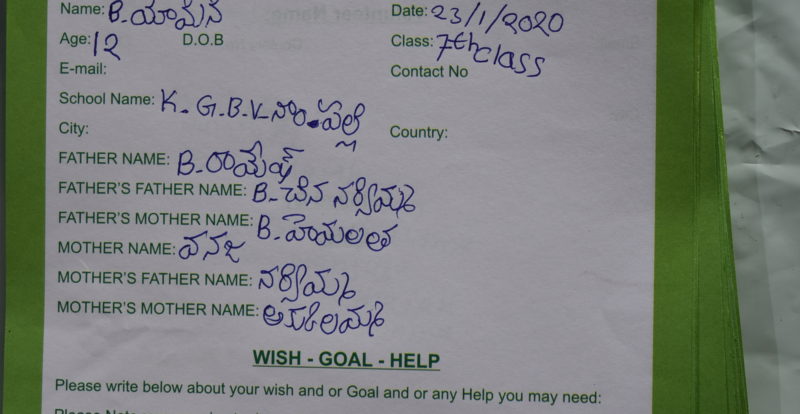 Name: B. యామిని Date: 23/1/2020
Age: 12 D.O.B Class: 7th class
E-mail: Contact No
School Name: K. G.B.V. నాం.పల్లి
City: Country:
FATHER NAME: B. రామేష్
FATHER'S FATHER NAME: B. చిన నర్సిమ్మ
FATHER'S MOTHER NAME: B. హేమలత
MOTHER NAME: వనజ
MOTHER'S FATHER NAME: నర్సిమ్మ
MOTHER'S MOTHER NAME:
WISH - GOAL - HELP
Please write below about your wish and or Goal and or any Help you may need: